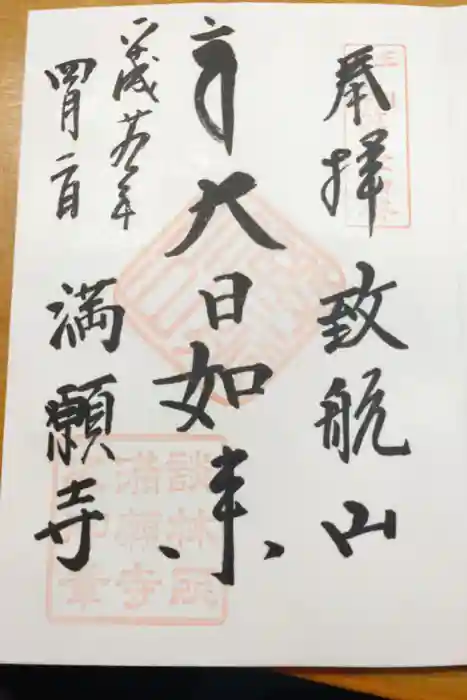 奉拝 致航山
大日如来
平成廿九年
四月二日
満願寺
談林所
満願寺
印章